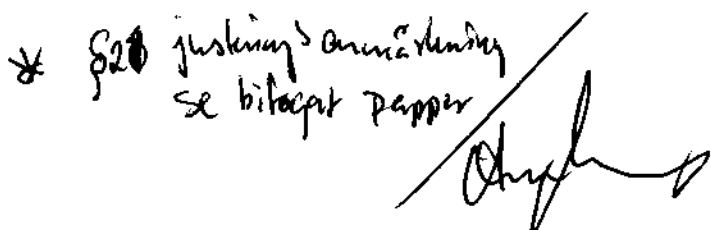 * §21 justerings anmärkning
se bifogat papper